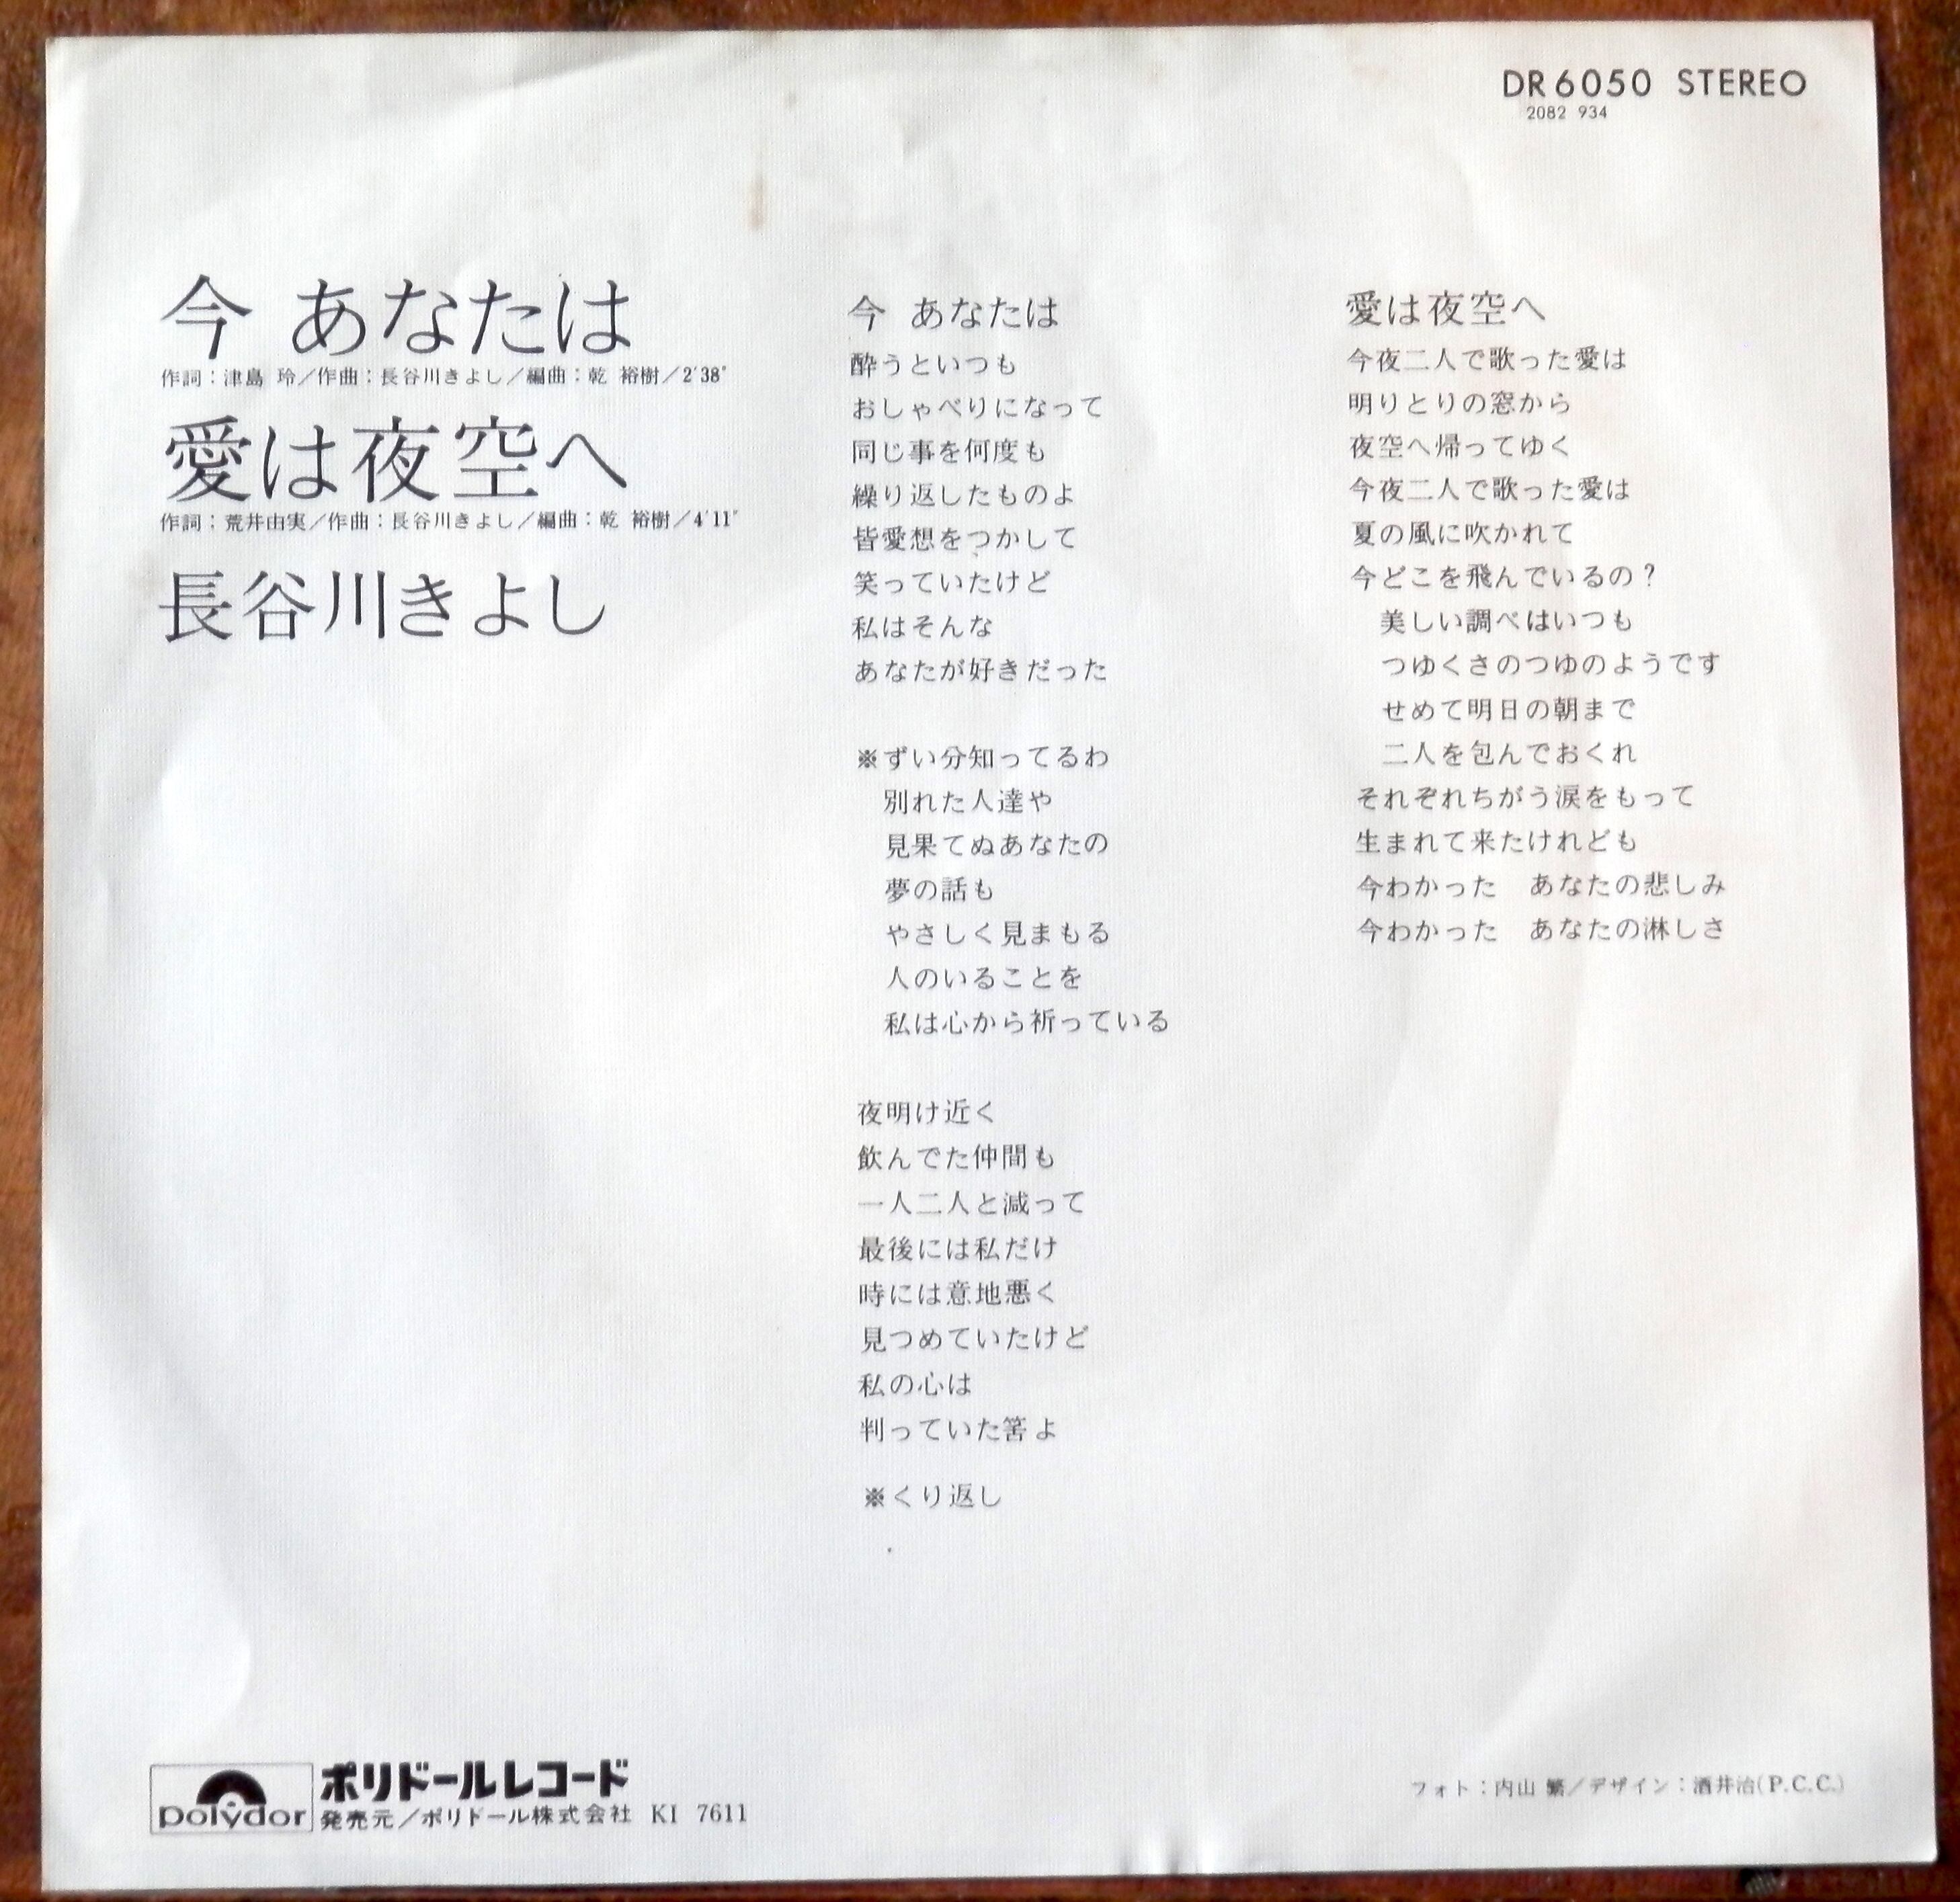 DR 6050 STEREO
2082 934
今 あなたは
作詞：津島 玲／作曲：長谷川きよし／編曲：乾 裕樹／2'38"
愛は夜空へ
作詞：荒井由実／作曲：長谷川きよし／編曲：乾 裕樹／4'11"
長谷川きよし
今 あなたは
酔うといつも
おしゃべりになって
同じ事を何度も
繰り返したものよ
皆愛想をつかして
笑っていたけど
私はそんな
あなたが好きだった
※ずい分知ってるわ
別れた人達や
見果てぬあなたの
夢の話も
やさしく見まもる
人のいることを
私は心から祈っている
夜明け近く
飲んでた仲間も
一人二人と減って
最後には私だけ
時には意地悪く
見つめていたけど
私の心は
判っていた筈よ
※くり返し
愛は夜空へ
今夜二人で歌った愛は
明りとりの窓から
夜空へ帰ってゆく
今夜二人で歌った愛は
夏の風に吹かれて
今どこを飛んでいるの？
美しい調べはいつも
つゆくさのつゆのようです
せめて明日の朝まで
二人を包んでおくれ
それぞれちがう涙をもって
生まれて来たけれども
今わかった　あなたの悲しみ
今わかった　あなたの淋しさ
polydor
ポリドールレコード
発売元／ポリドール株式会社 KI 7611
フォト：内山 繁／デザイン：酒井治(P.C.C.)